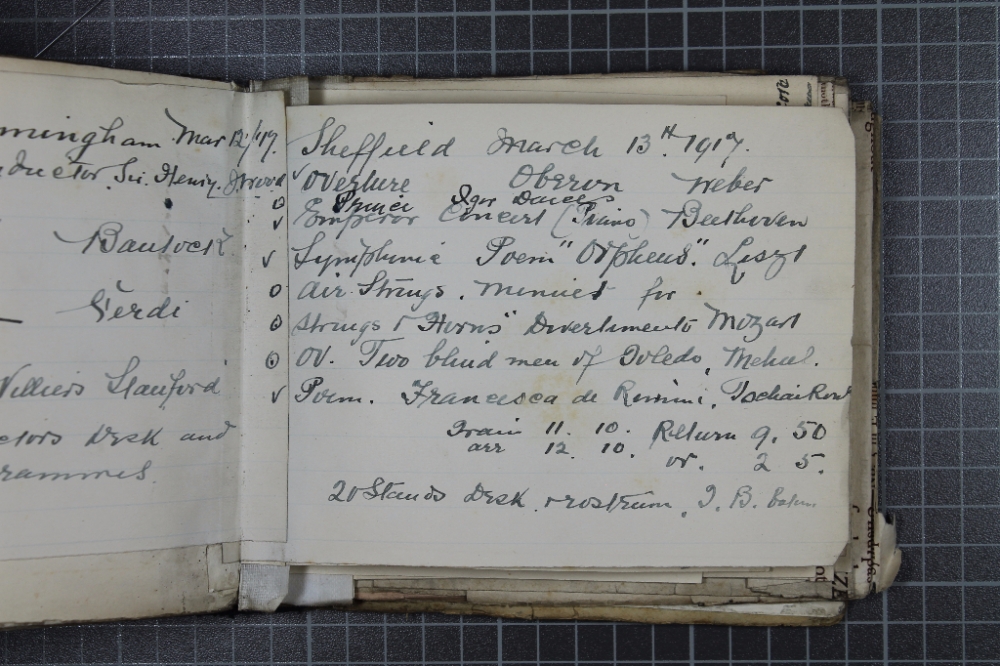 mingham Mar 12/17.
ductor, Sir. Henry. J Wood
Bantock
Verdi
Villiers Stanford
ctors Desk and
rammes.
Sheffield March 13th. 1917.
✓ Overture Oberon Weber
o Prince Igor Dances
✓ Emperor Concert (Piano) Beethoven
✓ Symphonic Poem "Orpheus". Liszt
o Air Strings. Menuet for.
o Strings & Horns" Divertimento Mozart
o Ov. Two blind men of Toledo, Mehul.
✓ Poem. Francesca de Rimini. Tschaikow
Train 11. 10. Return 9. 50
arr 12. 10. or. 2 5.
20 Stands Desk. rostrum, J. B.